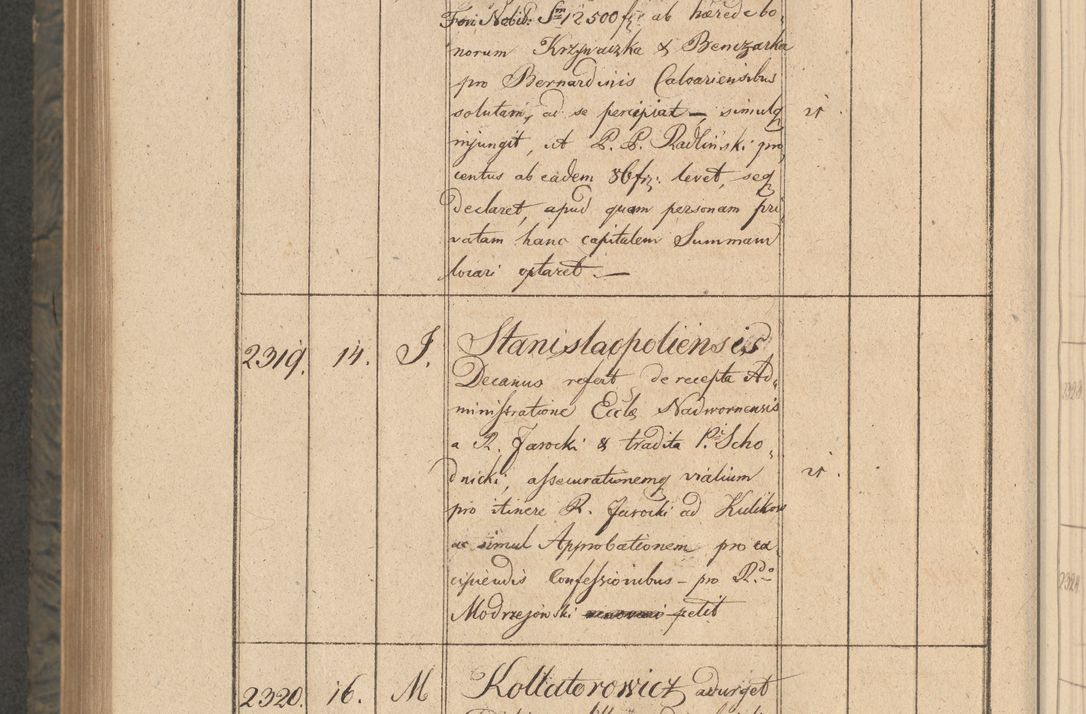 Fori Nobil: Sm 12500 fr ab hærede bo,
norum Krzywaczka & Benczarka
pro Bernardinis Calvariensibus
solutam, ad se percipiat — simulq
injungit, ut P. P. Radliński pro
centus ab eadem 86 fr: levet, seq
declaret, apud quam personam pri
vatam hanc capitalem Summam
locari optaret —
2319. 14. J. Stanislaopoliensis
Decanus refert de recepta Ad,
ministratione Eccle Nadwornensis
a R. Jarocki & tradita P. Scho,
dnicki, assecurationemq vialium
pro itinere R. Jarocki ad Kulikow
ac simul Approbationem pro ex
cipiendis Confessionibus – pro R.do
Modrzejowski petit
2320. 16. M Kollatorowicz adurget